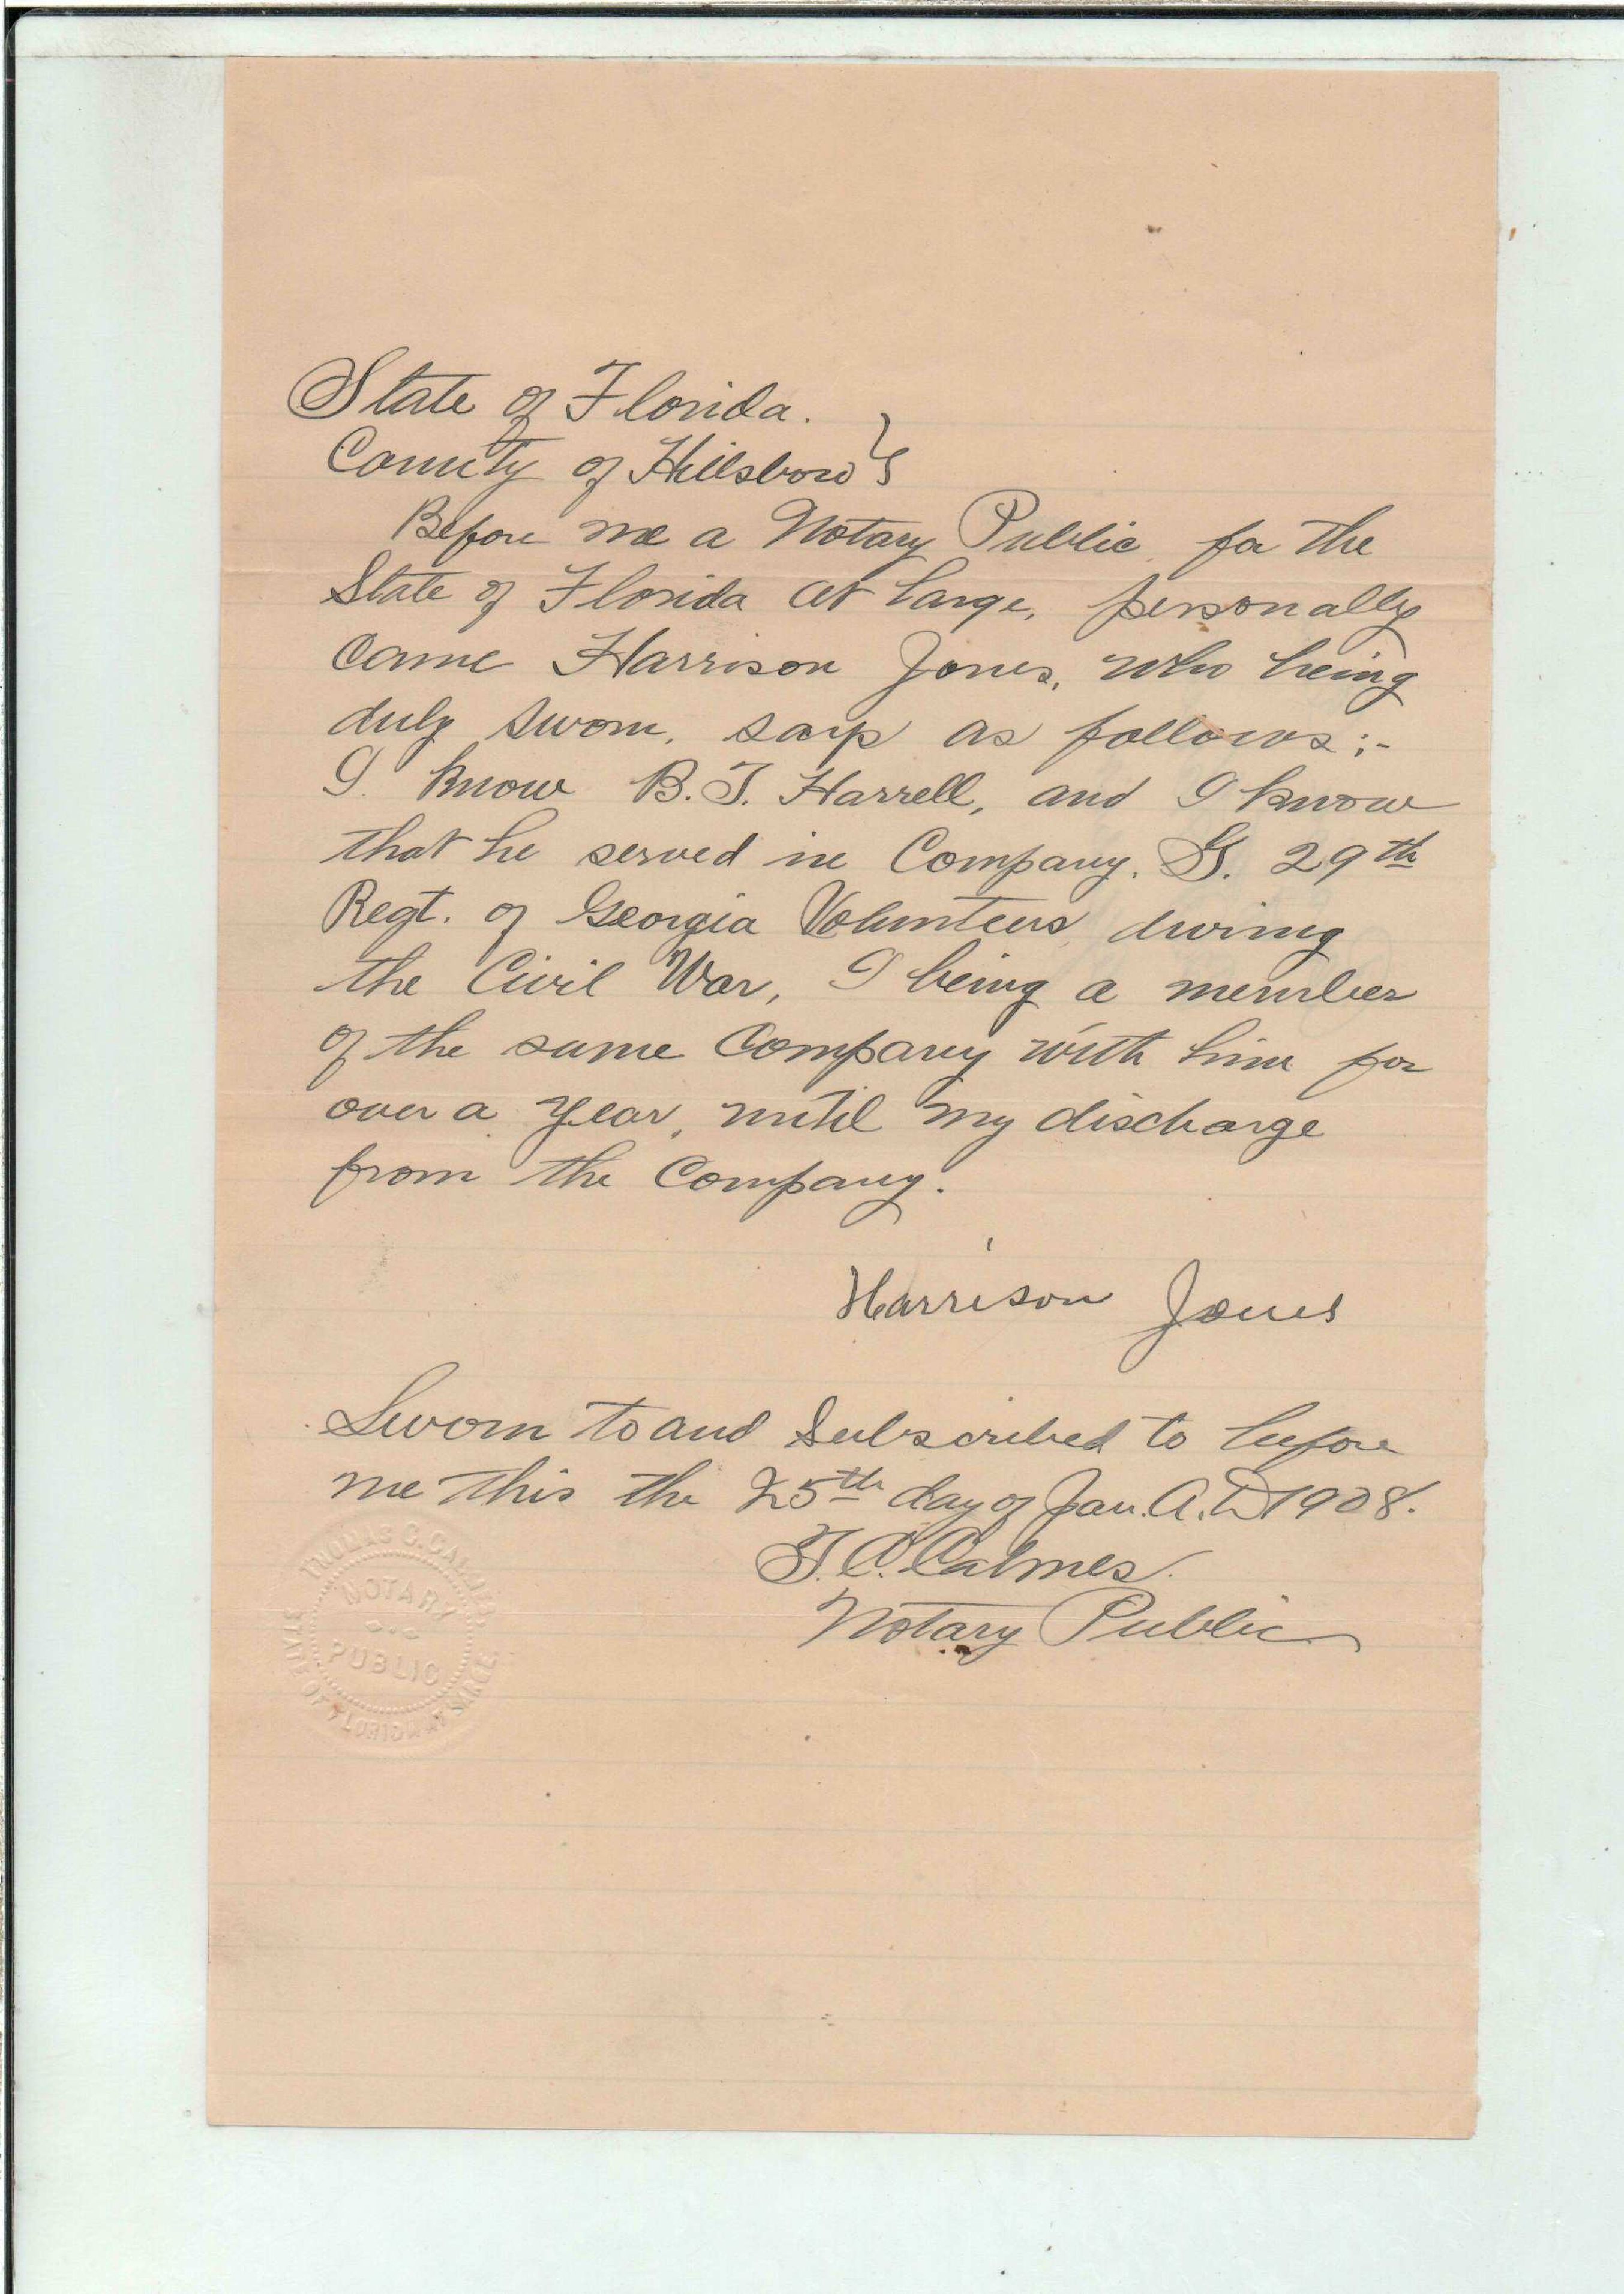 State of Florida.
County of Hillsboro }
Before me a Notary Public for the
State of Florida at Large, personally
came Harrison Jones, who being
duly sworn, says as follows:-
I know B.T. Harrell, and I know
that he served in Company. G. 29th
Regt. of Georgia Volunteers during
the Civil War, I being a member
of the same Company with him for
over a year, until my discharge
from the Company.
Harrison Jones
Sworn to and Subscribed to before
me this the 25th day of Jan. A.D 1908.
T.C. Calmes.
Notary Public
THOMAS C. CALMES
NOTARY
PUBLIC
STATE OF FLORIDA AT LARGE